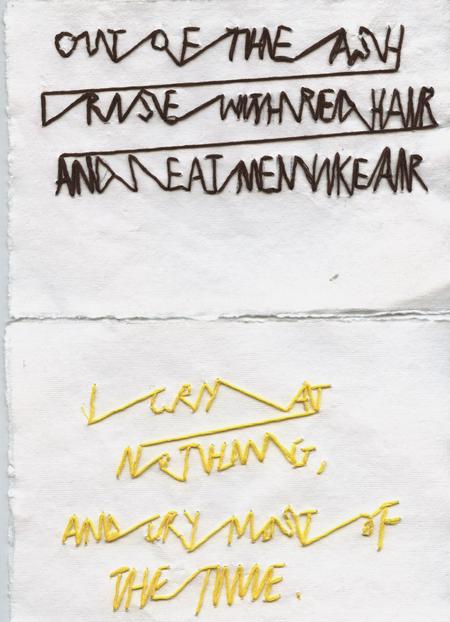 OUT OF THE ASH
I RISE WITH RED HAIR
AND I EAT MEN LIKE AIR
I CRY AT
NOTHING,
AND CRY MOST OF
THE TIME.